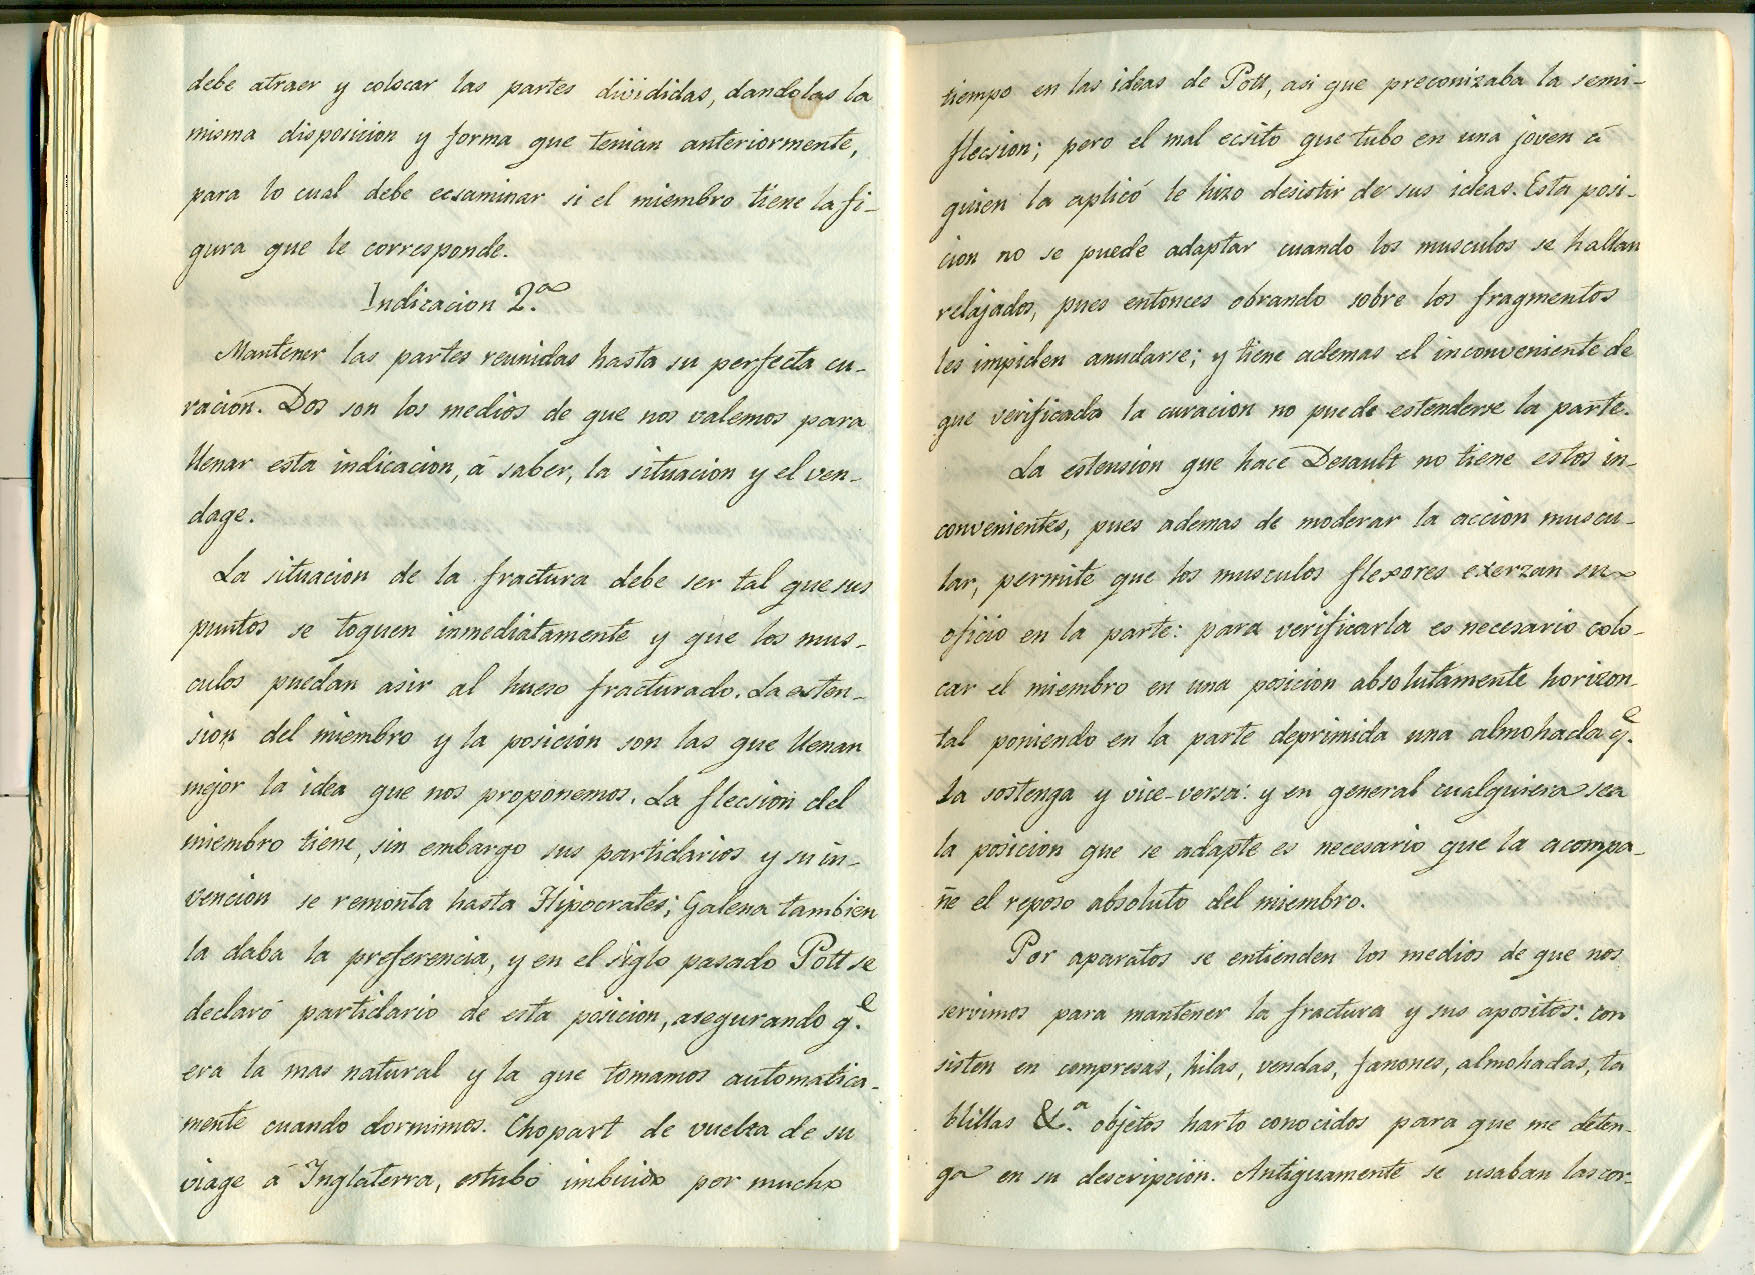 debe atraer y colocar las partes divididas, dandolas la
misma disposicion y forma que tenian anteriormente,
para lo cual debe ecsaminar si el miembro tiene la fi-
gura que le corresponde.
Indicacion 2.a
Mantener las partes reunidas hasta su perfecta cu-
racion. Dos son los medios de que nos valemos para
llenar esta indicacion, á saber, la situacion y el ven-
dage.
La situacion de la fractura debe ser tal que sus
puntos se toquen inmediatamente y que los mus-
culos puedan asir al hueso fracturado. La esten-
sion del miembro y la posicion son las que llenan
mejor la idea que nos proponemos. La flecsion del
miembro tiene, sin embargo sus partidarios y su in-
vencion se remonta hasta Hipocrates; Galeno tambien
la daba la preferencia, y en el siglo pasado Pott se
declaró partidario de esta posicion, asegurando q.e
era la mas natural y la que tomamos automatica-
mente cuando dormimos. Chopart de vuelta de su
viage á Inglaterra, estubo imbuido por mucho
tiempo en las ideas de Pott, asi que preconizaba la semi-
flecsion; pero el mal ecsito que tubo en una joven á
quien la aplicó le hizo desistir de sus ideas. Esta posi-
cion no se puede adaptar cuando los musculos se hallan
relajados, pues entonces obrando sobre los fragmentos
les impiden anudarse; y tiene ademas el inconveniente de
que verificada la curacion no puede estenderse la parte.
La estension que hace Desault no tiene estos in-
convenientes, pues ademas de moderar la accion muscu-
lar, permite que los musculos flexores exerzan su
oficio en la parte: para verificarla es necesario colo-
car el miembro en una posicion absolutamente horizon-
tal poniendo en la parte deprimida una almohada q.e
la sostenga y vice-versa: y en general cualquiera sea
la posicion que se adapte es necesario que la acompa-
ñe el reposo absoluto del miembro.
Por aparatos se entienden los medios de que nos
servimos para mantener la fractura y sus apositos: con
sisten en compresas, hilas, vendas, fanones, almohadas, ta
blillas &.a objetos harto conocidos para que me deten-
ga en su descripcion. Antiguamente se usaban las cor-